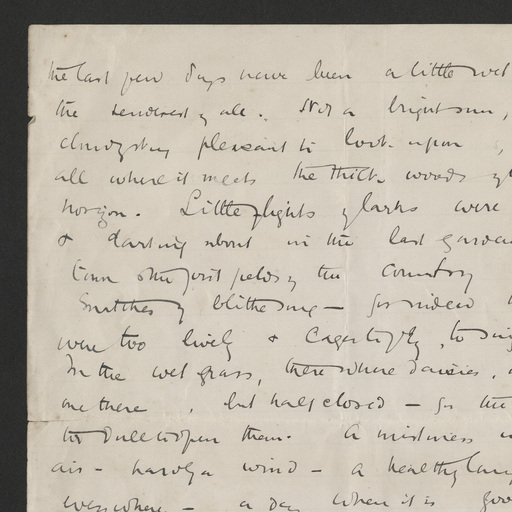 the last few days have been a little wet
the tenderest of all. Not a bright sun,
pleasant to look upon
all where it meets the thick woods of
horizon. Little flights of larks were
& darting about in the last garden
Town & the first fields of the Country
Snatches of blithe song — for indeed
were too lively & eager to fly, to sing
In the wet grass, there where daisies,
one there, but half closed — for the
too dull to open them. A mistiness
air - hardly a wind - a healthy
everywhere - a day when it is good